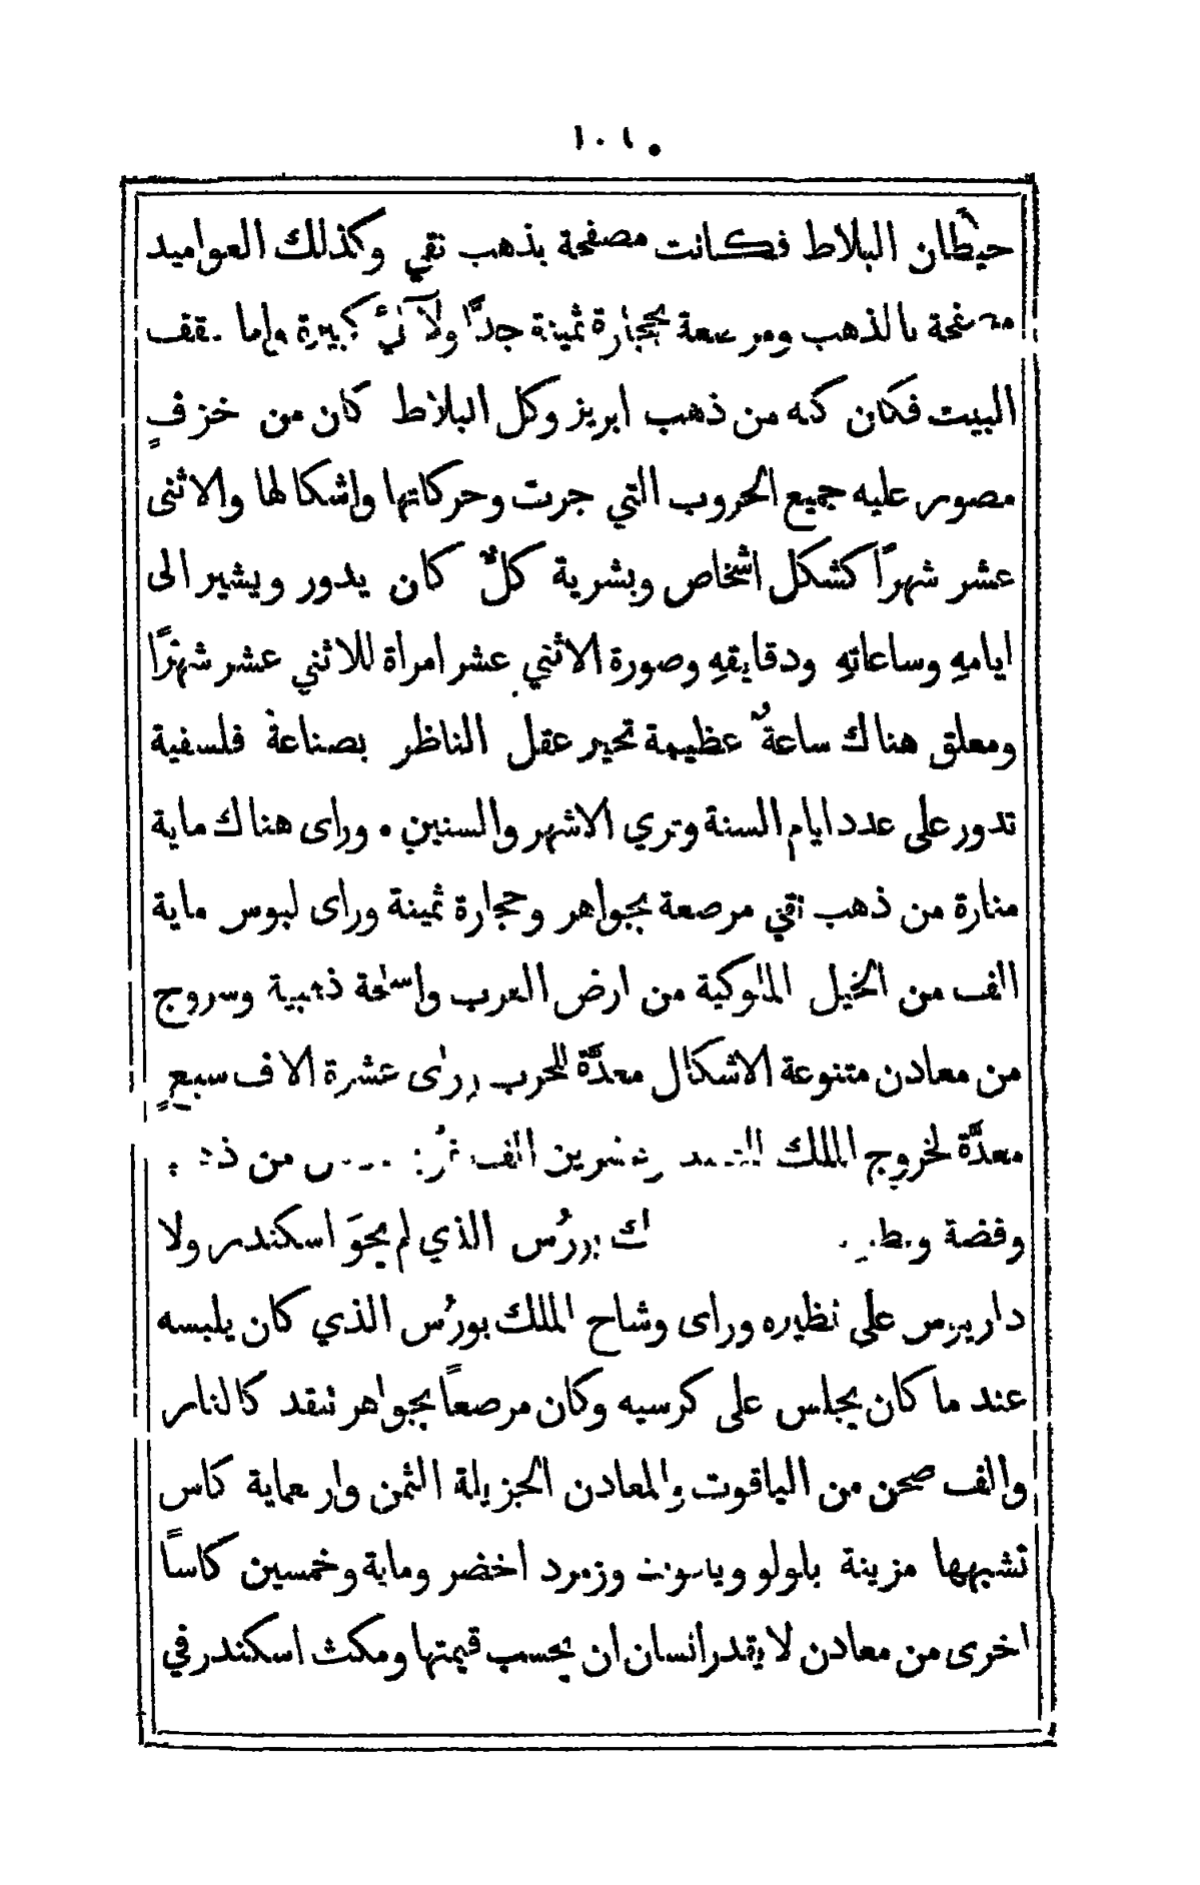 ١٠١
حيطان البلاط فكانت مصفحة بذهب نقي وكذلك العواميد
مصفحة بالذهب ومرصعة بحجارة ثمينة جدًّا ولآلئ كبيرة واما سقف
البيت فكان كله من ذهب ابريز وكل البلاط كان من خزفٍ
مصور عليه جميع الحروب التي جرت وحركاتها واشكالها والاثنى
عشر شهرًا كشكل اشخاص وبشرية كلٌّ كان يدور ويشير الى
ايامهِ وساعاتهِ ودقايقهِ وصورة الاثني عشر امراة للاثني عشر شهرًا
ومعلق هناك ساعةٌ عظيمة تحير عقل الناظر بصناعة فلسفية
تدور على عدد ايام السنة وتري الاشهر والسنين ٠ وراى هناك ماية
منارة من ذهب نقي مرصعة بجواهر وحجارة ثمينة وراى لبوس ماية
الف من الخيل الملوكية من ارض العرب واسلحة ذهبية وسروج
من معادن متنوعة الاشكال معدَّة للحرب وراى عشرة الاف سبعٍ
معدَّة لخروج الملك للصيد وعشرين الف من ذهب
وفضة بورُس الذي لم يحوَ اسكندر ولا
داريوس على نظيره وراى وشاح الملك بورُس الذي كان يلبسه
عند ما كان يجلس على كرسيه وكان مرصعاً بجواهر تتقد كالنار
والف صحن من الياقوت والمعادن الجزيلة الثمن واربعماية كاس
تشبهها مزينة بلولو وياقوت وزمرد اخضر وماية وخمسين كاسًا
اخرى من معادن لا يقدر انسان ان يحسب قيمتها ومكث اسكندر في